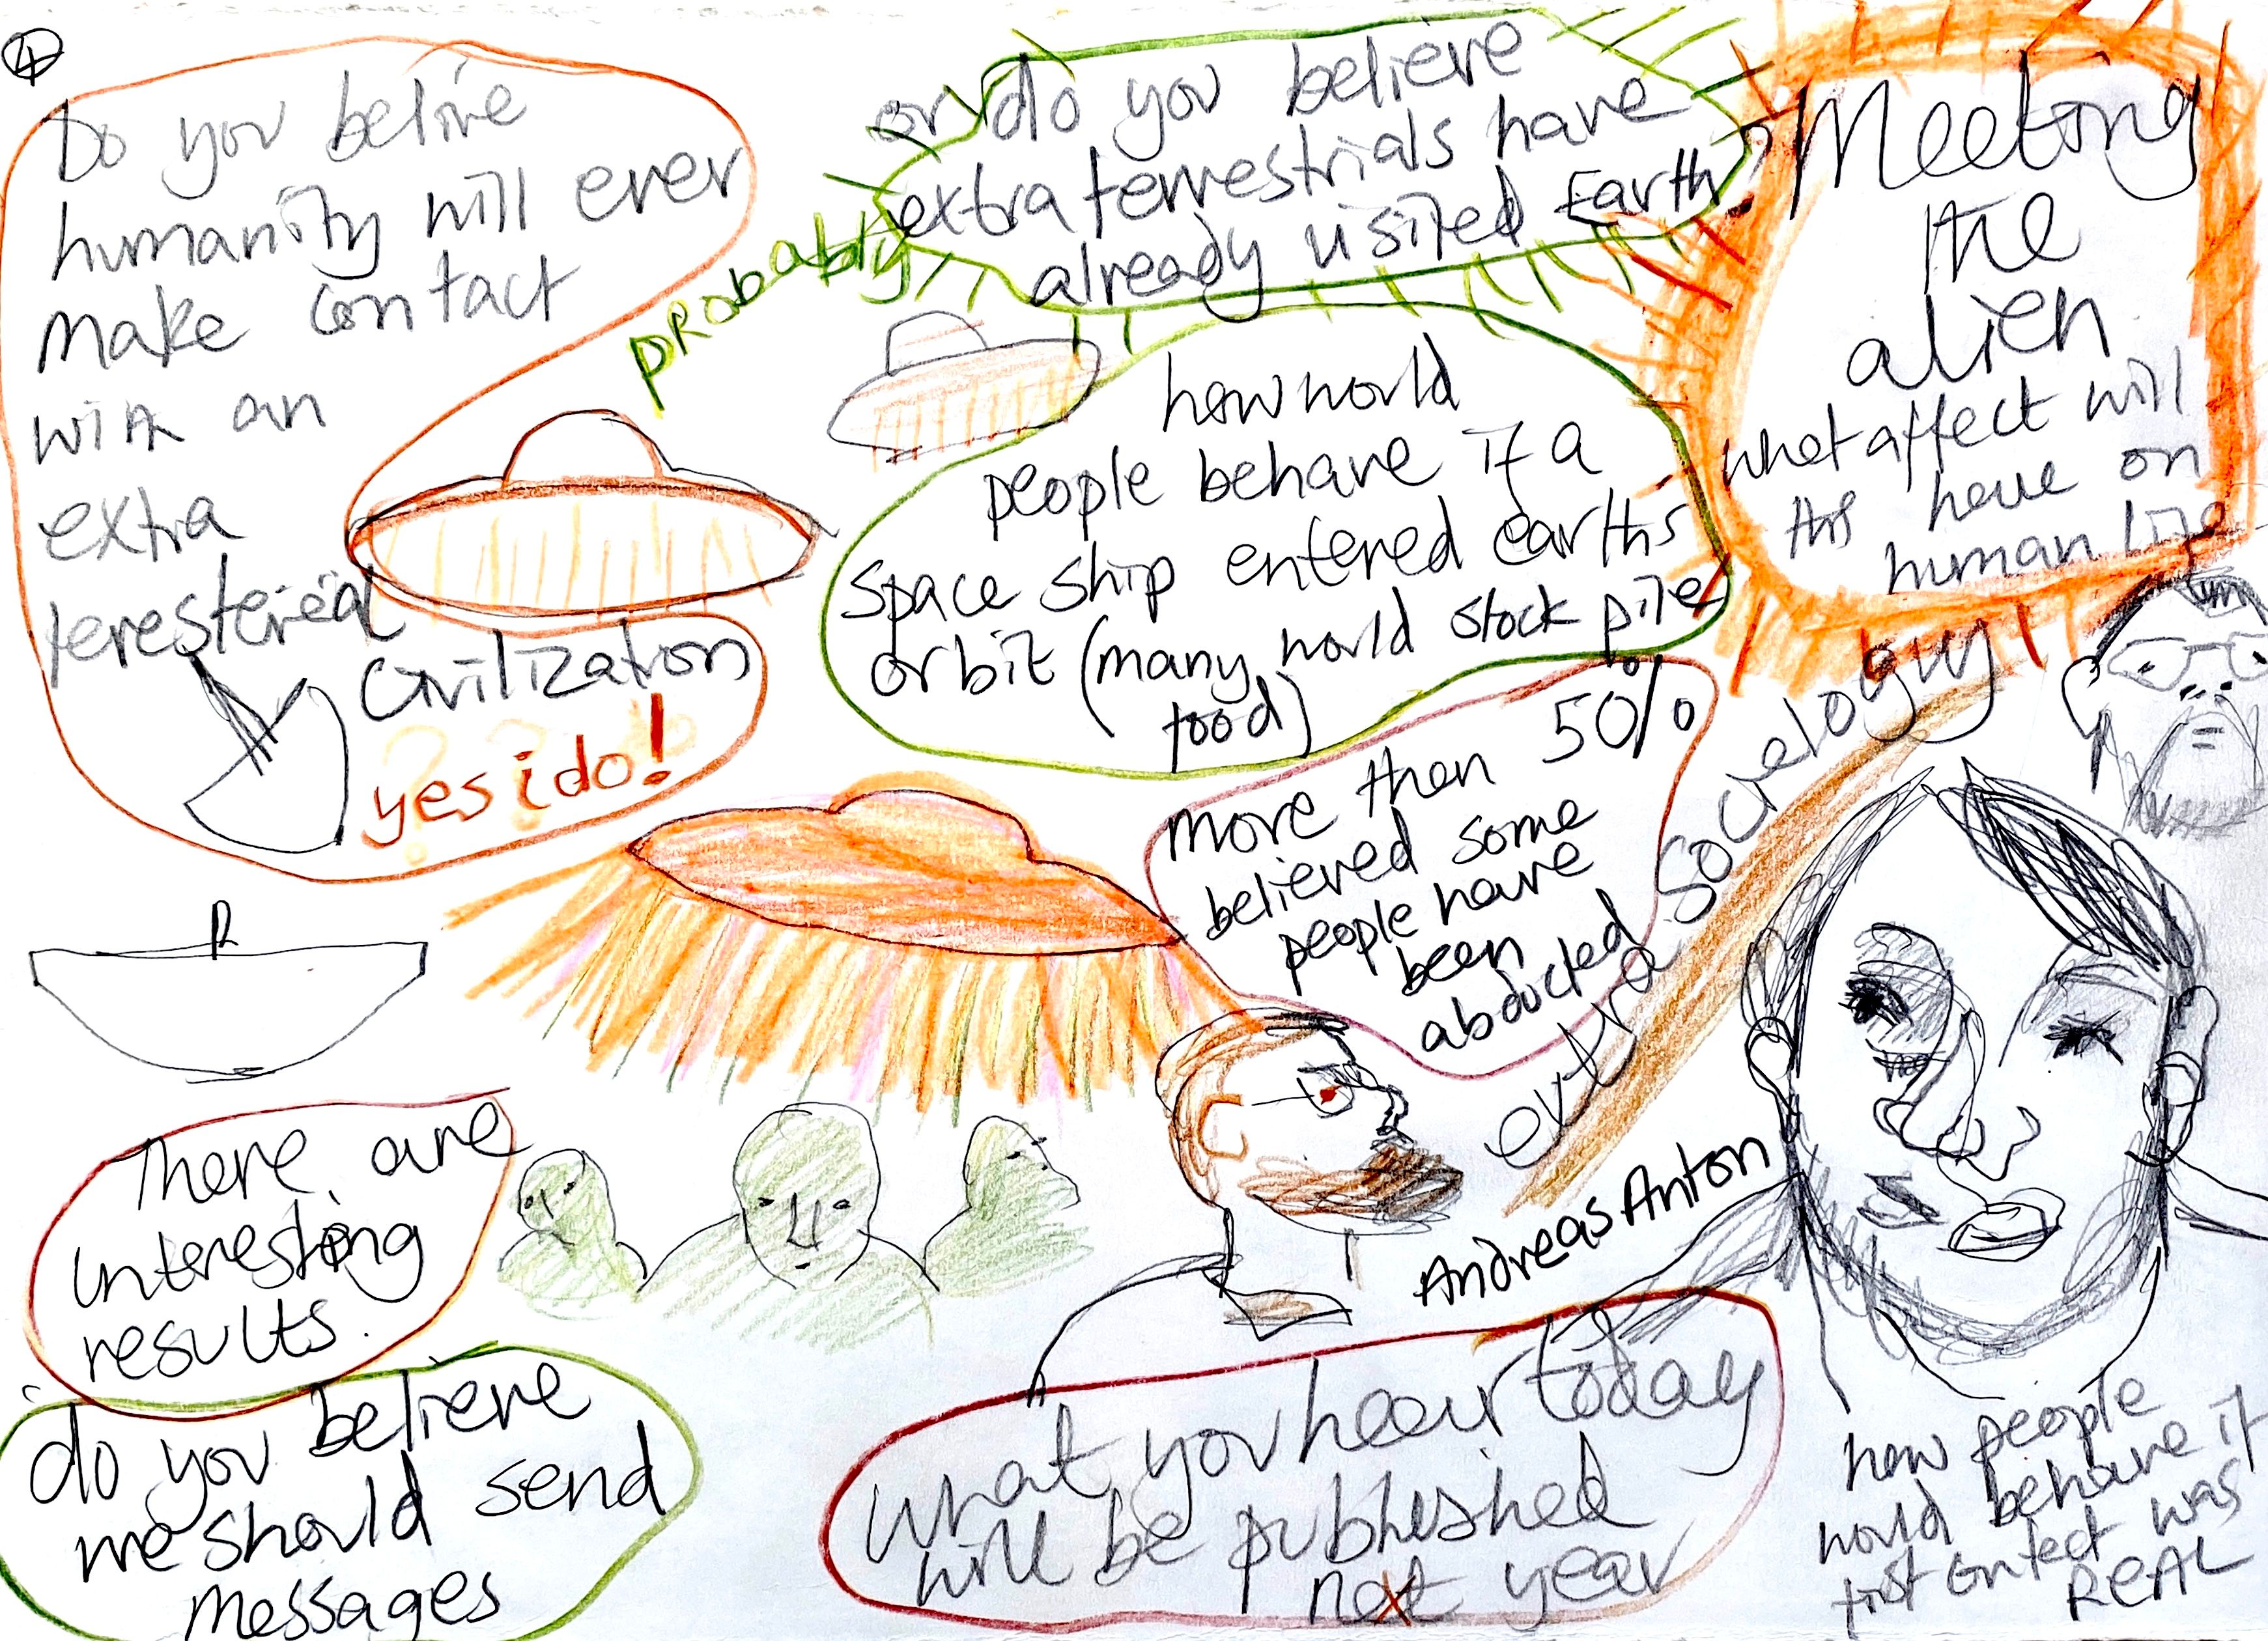 4
Do you belive
humanity will ever
make contact
with an
extra
terestereal
Civilization
yes i do!
probably
or do you believe
extra terrestrials have
already visited Earth?
how would
people behave if a
space ship entered earths
orbit (many would stock pile
food)
Meeting
the
alien
what affect will
this have on
human life
more then 50%
believed some
people have
been
abducted
extra socielogy
Andreas Anton
There are
interesting
results.
do you believe
we should send
messages
what you hear today
will be published
next year
how people
would behave if
first contact was
REAL